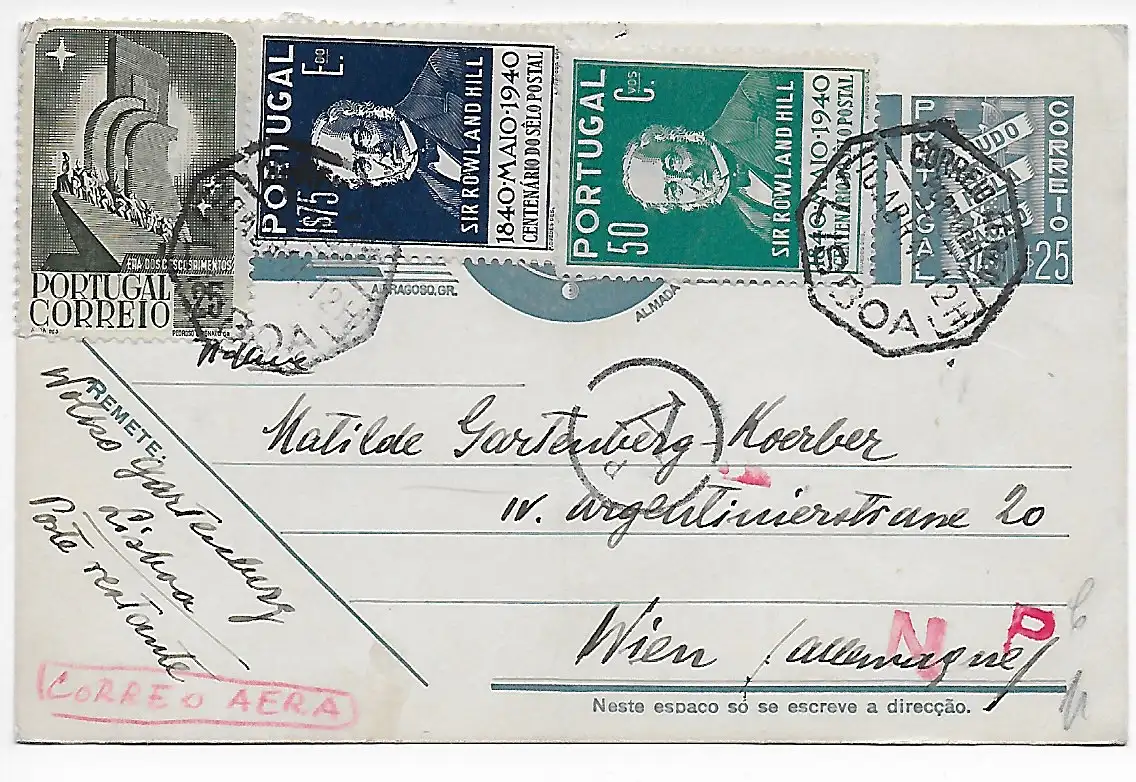 ERA DOS DESCOBRIMENTOS
PORTUGAL
CORREIO
25
PORTUGAL
1$75 E.DO
SIR ROWLAND HILL
1840·MAIO·1940
CENTENÁRIO DO SELO POSTAL
PORTUGAL
50 C.VOS
SIR ROWLAND HILL
1840·MAIO·1940
CENTENÁRIO DO SELO POSTAL
PORTUGAL
CORREIO
TUDO
$25
A.FRAGOSO,GR.
ALMADA
CORREIO
12H
LISBOA
REMETE:
Wolko Gartenberg
Lisboa
Poste restante
Madame
Matilde Gartenberg-Koerber
IV. Argentinierstrasse 20
Wien (allemagne)
N P
CORREO AERA
Neste espaço só se escreve a direcção.